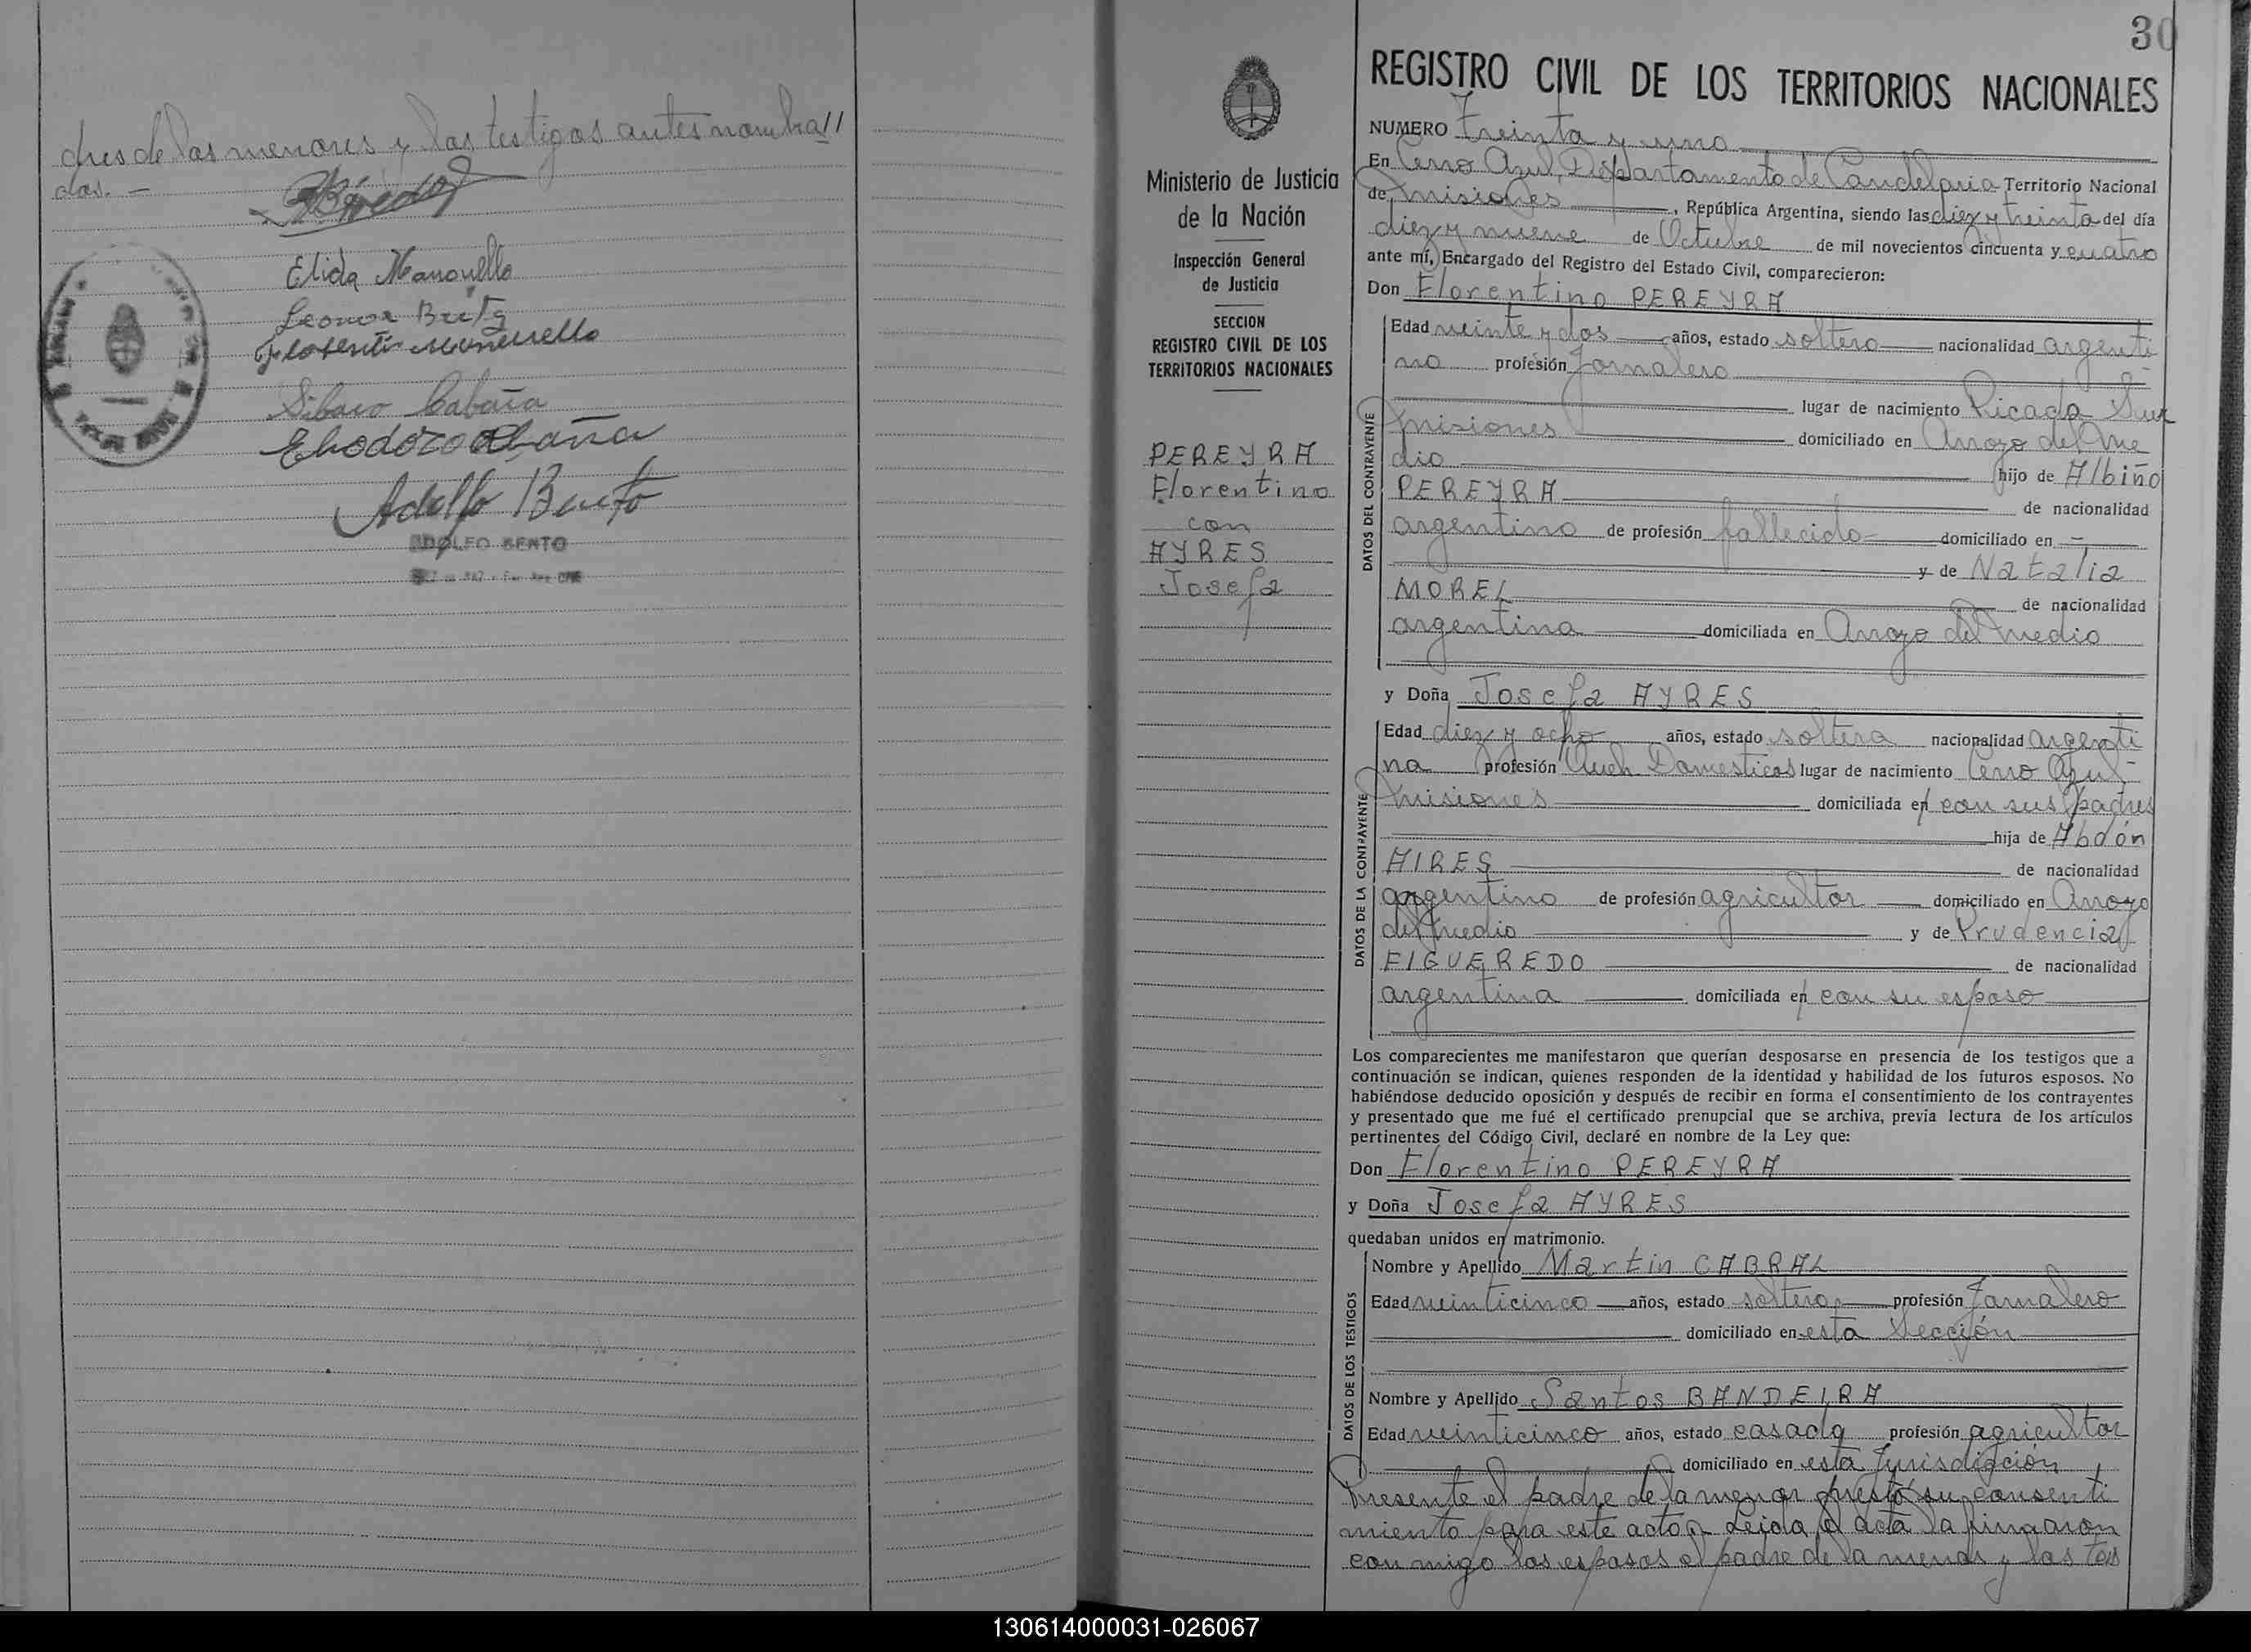 dres de las menores y las testigos antes nombra//
dos. —
Elida
Leonor
Eliodoro Cabaña
Adolfo Bento
ADOLFO BENTO
30
REGISTRO CIVIL DE LOS TERRITORIOS NACIONALES
Ministerio de Justicia
de la Nación
Inspección General
de Justicia
SECCION
REGISTRO CIVIL DE LOS
TERRITORIOS NACIONALES
PEREYRA
Florentino
con
AYRES
Josefa
NUMERO Treinta y uno
En Cerro Azul, Departamento de Candelaria Territorio Nacional
de Misiones, República Argentina, siendo las diez y treinta del día
diez y nueve de Octubre de mil novecientos cincuenta y cuatro
ante mí, Encargado del Registro del Estado Civil, comparecieron:
Don Florentino PEREYRA
DATOS DEL CONTRAYENTE
Edad veinte y dos años, estado soltero nacionalidad argenti
no profesión Jornalero
lugar de nacimiento Picada Sur
Misiones domiciliado en Arroyo del Me
dio hijo de Albino
PEREYRA de nacionalidad
argentino de profesión fallecido domiciliado en —
y de Natalia
MOREL de nacionalidad
argentina domiciliada en Arroyo del Medio
y Doña Josefa AYRES
DATOS DE LA CONTRAYENTE
Edad diez y ocho años, estado soltera nacionalidad argenti
na profesión Queh. Domesticos lugar de nacimiento Cerro Azul
Misiones domiciliada en con sus padres
hija de Abdón
AIRES de nacionalidad
argentino de profesión agricultor domiciliado en Arroyo
del Medio y de Prudencia
FIGUEREDO de nacionalidad
argentina domiciliada en con su esposo
Los comparecientes me manifestaron que querían desposarse en presencia de los testigos que a
continuación se indican, quienes responden de la identidad y habilidad de los futuros esposos. No
habiéndose deducido oposición y después de recibir en forma el consentimiento de los contrayentes
y presentado que me fué el certificado prenupcial que se archiva, previa lectura de los artículos
pertinentes del Código Civil, declaré en nombre de la Ley que:
Don Florentino PEREYRA
y Doña Josefa AYRES
quedaban unidos en matrimonio.
DATOS DE LOS TESTIGOS
Nombre y Apellido Martin CABRAL
Edad veinticinco años, estado soltero profesión Jornalero
domiciliado en esta Sección
Nombre y Apellido Santos BANDEIRA
Edad veinticinco años, estado casado profesión agricultor
domiciliado en esta Jurisdicción
Presente el padre de la menor prestó su consenti
miento para este acto. Leida el acta la firmaron
con migo los esposos el padre de la menor y los tes
130614000031-026067